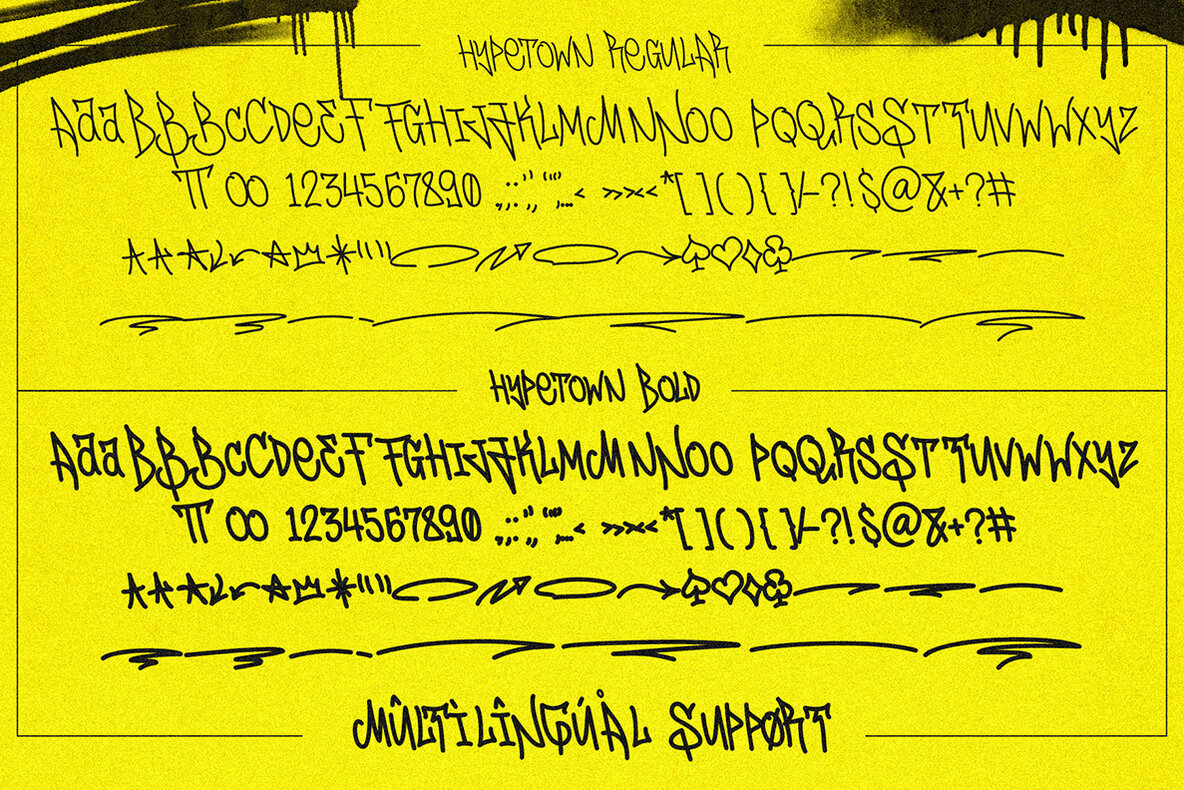 HYPETOWN REGULAR
AaaBBBCCDeEFFGHIJJKLMMNNOO PQQRSSTTUVWWXYZ
TT OO 1234567890 .,:;'',, "",,... < »><*[ ] ( ) { } /-?!$@&+?#
HYPETOWN BOLD
AaaBBBCCDeEFFGHIJJKLMMNNOO PQQRSSTTUVWWXYZ
TT OO 1234567890 .,:;'',, "",,... < »><*[ ] ( ) { } /-?!$@&+?#
MÛLTÌLÎNGÚÅL SUPPØRT